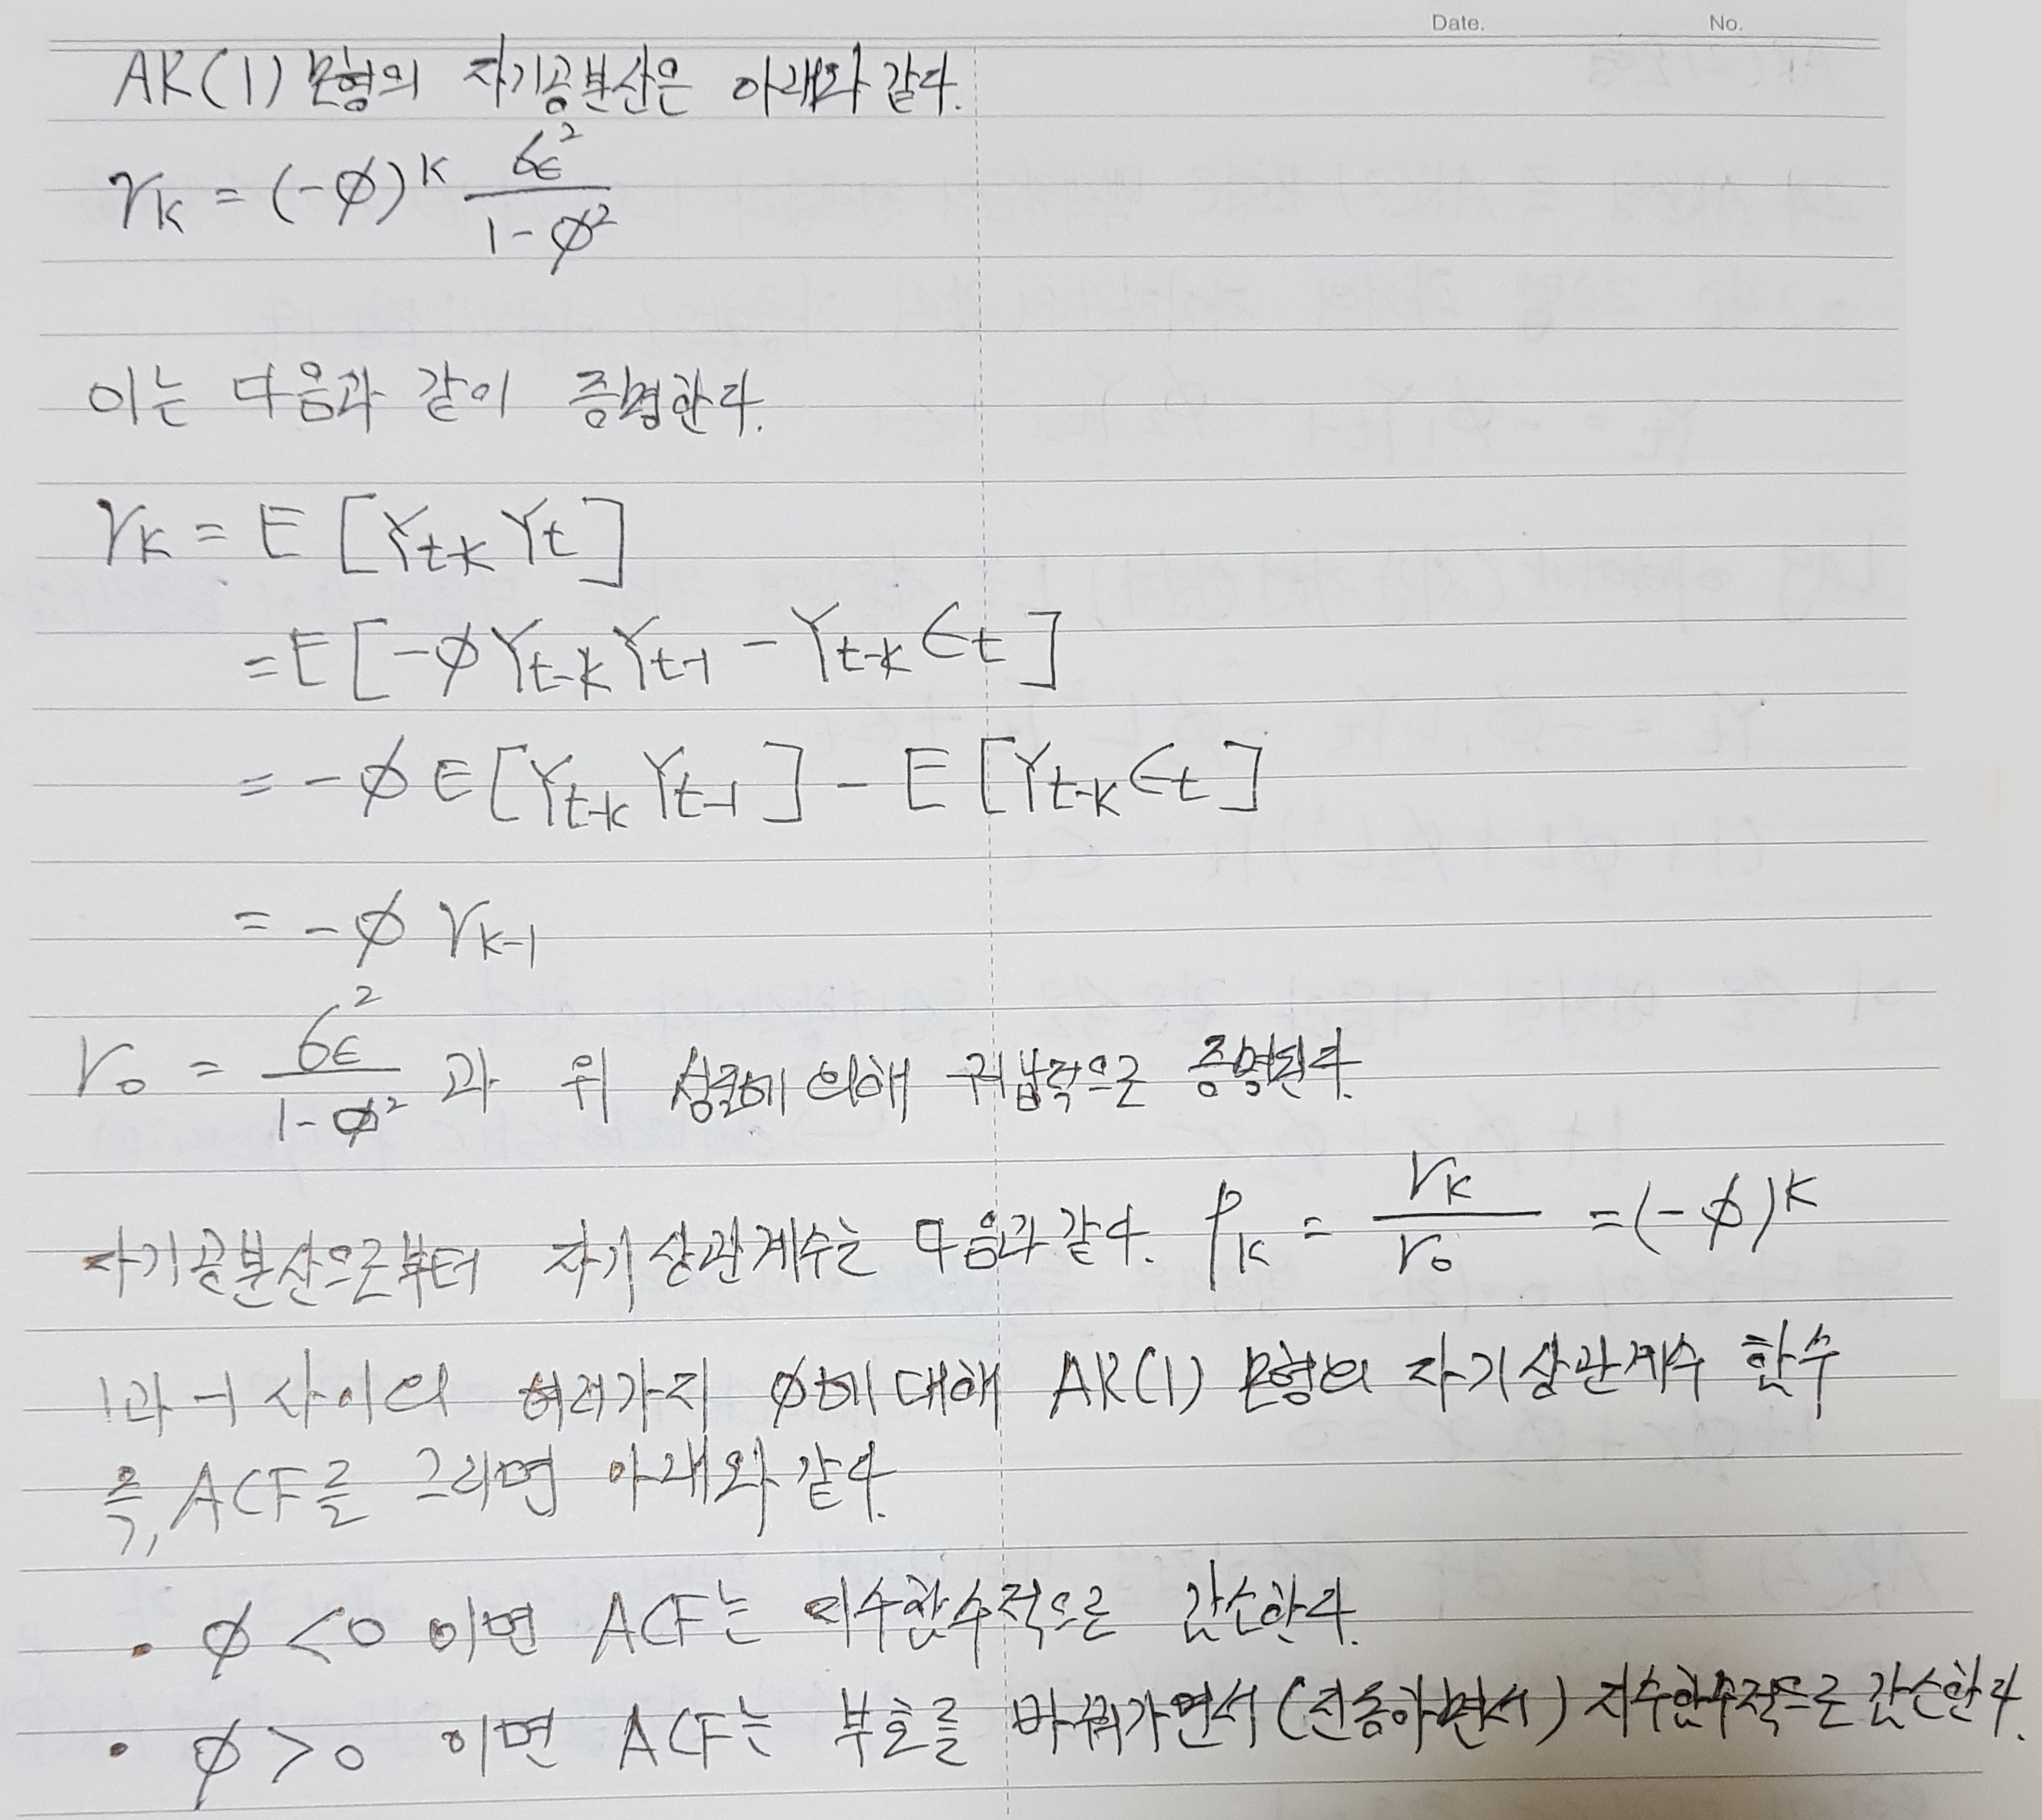 Date. No.
AR(1) 모형의 자기공분산은 아래와 같다.
γk = (-φ)^k σϵ² / (1-φ²)
이는 다음과 같이 증명한다.
γk = E [Yt-k Yt]
= E [-φ Yt-k Yt-1 - Yt-k ϵt]
= -φ E [Yt-k Yt-1] - E [Yt-k ϵt]
= -φ γk-1
γ0 = σϵ² / (1-φ²) 과 위 식에 의해 귀납적으로 증명된다.
자기공분산으로부터 자기상관계수는 다음과 같다. ρk = γk / γ0 = (-φ)^k
1과 -1 사이의 여러가지 φ에 대해 AR(1) 모형의 자기상관계수 함수
즉, ACF를 그리면 아래와 같다.
• φ < 0 이면 ACF는 지수함수적으로 감소한다.
• φ > 0 이면 ACF는 부호를 바꿔가면서 (진동하면서) 지수함수적으로 감소한다.